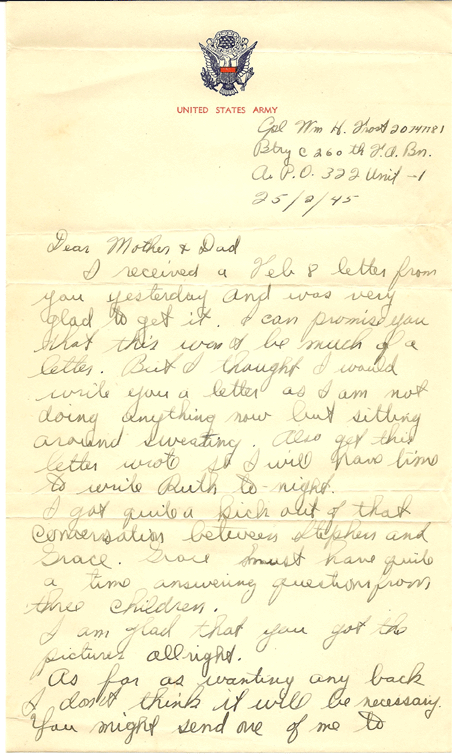 UNITED STATES ARMY
Cpl Wm H. Frost 20741181
Btry C 260 th F.A. Bn.
A. P.O. 322 Unit -1
25/2/45
Dear Mother & Dad
I received a Feb 8 letter from
you yesterday and was very
glad to get it. I can promise you
that this won't be much of a
letter. But I thought I would
write you a letter as I am not
doing anything now but sitting
around sweating. Also get this
letter wrote so I will have time
to write Ruth to-night.
I got quite a kick out of that
conversation between Stephen and
Grace. Grace must have quite
a time answering questions from
three children.
I am glad that you got the
pictures allright.
As far as wanting any back
I don't think it will be necessary.
You might send one of me to